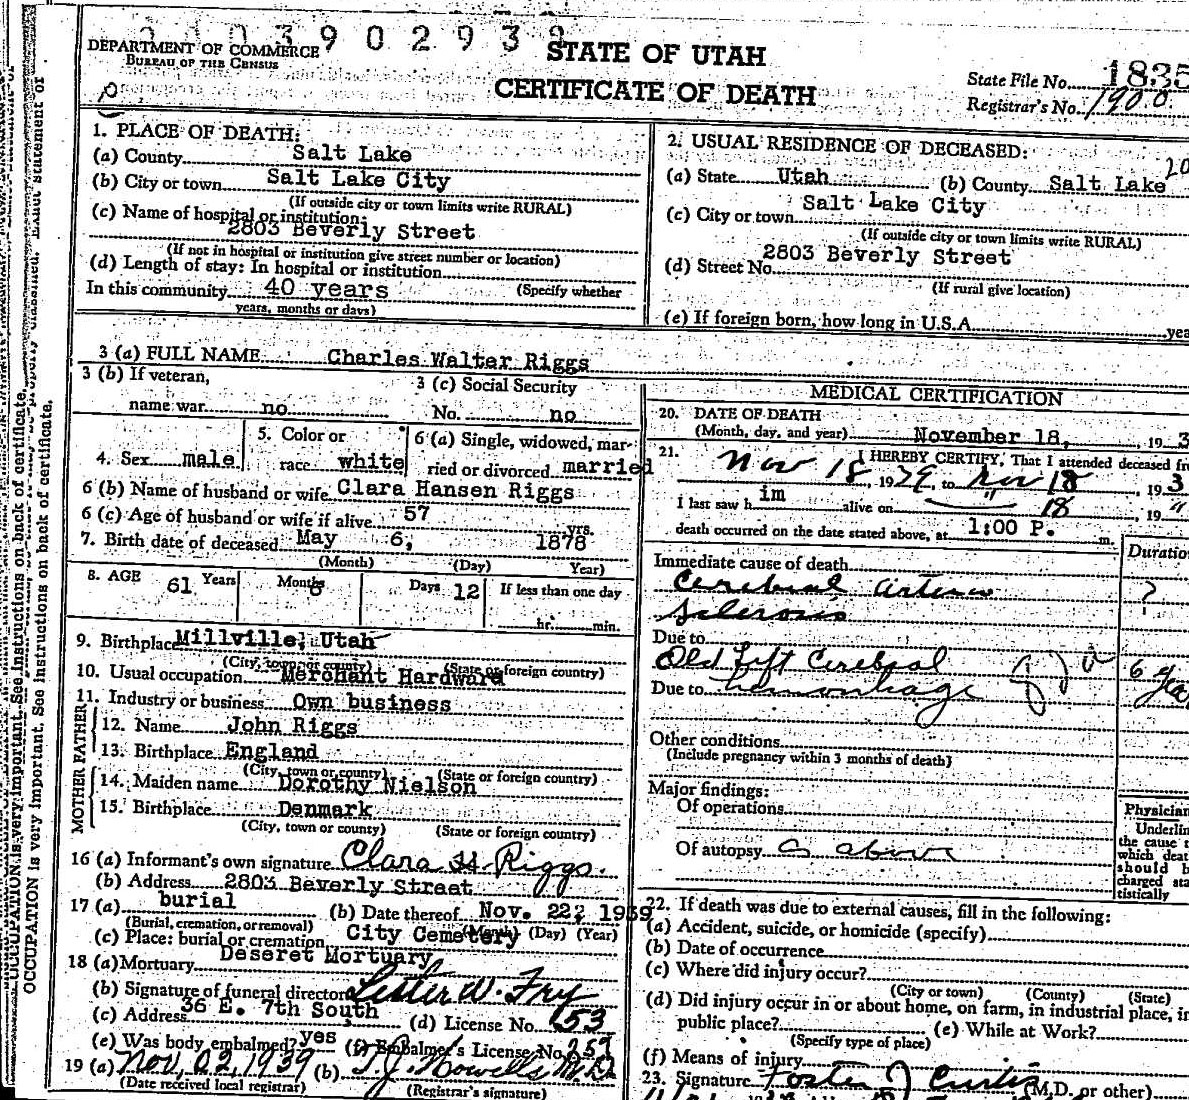 3902938
DEPARTMENT OF COMMERCE
BUREAU OF THE CENSUS
STATE OF UTAH
CERTIFICATE OF DEATH
State File No. 1835
Registrar's No. 1900
1. PLACE OF DEATH:
(a) County Salt Lake
(b) City or town Salt Lake City
(If outside city or town limits write RURAL)
(c) Name of hospital or institution:
2803 Beverly Street
(If not in hospital or institution give street number or location)
(d) Length of stay: In hospital or institution
In this community 40 years (Specify whether
years, months or days)
2. USUAL RESIDENCE OF DECEASED:
20
(a) State Utah (b) County Salt Lake
(c) City or town Salt Lake City
(If outside city or town limits write RURAL)
(d) Street No. 2803 Beverly Street
(If rural give location)
(e) If foreign born, how long in U.S.A. yea
3 (a) FULL NAME Charles Walter Riggs
3 (b) If veteran,
name war no
3 (c) Social Security
No. no
4. Sex male
5. Color or
race white
6 (a) Single, widowed, mar-
ried or divorced married
6 (b) Name of husband or wife Clara Hansen Riggs
6 (c) Age of husband or wife if alive 57 yrs.
7. Birth date of deceased May 6, 1878
(Month) (Day) Year)
8. AGE 61 Years Months 6 Days 12 If less than one day
hr. min.
9. Birthplace Millville, Utah
(City, town or county) (State or foreign country)
10. Usual occupation Merchant Hardware
11. Industry or business Own business
FATHER
12. Name John Riggs
13. Birthplace England
(City, town or county) (State or foreign country)
MOTHER
14. Maiden name Dorothy Nielson
15. Birthplace Denmark
(City, town or county) (State or foreign country)
16 (a) Informant's own signature Clara H. Riggs.
(b) Address 2803 Beverly Street
17 (a) burial (b) Date thereof Nov. 22, 1939
(Burial, cremation, or removal) (Month) (Day) (Year)
(c) Place: burial or cremation City Cemetery
18 (a) Mortuary Deseret Mortuary
(b) Signature of funeral director Lester W. Fry
(c) Address 36 E. 7th South (d) License No. 153
(e) Was body embalmed? yes (f) Embalmer's License No. 259
19 (a) Nov, 22, 1939 (b) T.J. Howells M.D.
(Date received local registrar) (Registrar's signature)
MEDICAL CERTIFICATION
20. DATE OF DEATH
(Month, day, and year) November 18, 193
21. I HEREBY CERTIFY, That I attended deceased fr
Nov 18, 1939, to Nov 18, 193
I last saw him alive on " 18, 19"
death occurred on the date stated above, at 1:00 P. m.
Duratio
Immediate cause of death
Cerebral arterio ?
sclerosis
Due to
Old left Cerebral 6 yea
Due to hemorrhage
Other conditions
(Include pregnancy within 3 months of death)
Major findings:
Of operations
Of autopsy as above
Physician
Underlin
the cause t
which deat
should b
charged sta
tistically
22. If death was due to external causes, fill in the following:
(a) Accident, suicide, or homicide (specify)
(b) Date of occurrence
(c) Where did injury occur?
(City or town) (County) (State)
(d) Did injury occur in or about home, on farm, in industrial place, in
public place? (e) While at Work?
(Specify type of place)
(f) Means of injury
23. Signature Foster J Curtis (M.D. or other)
OCCUPATION is very important. See instructions on back of certificate.